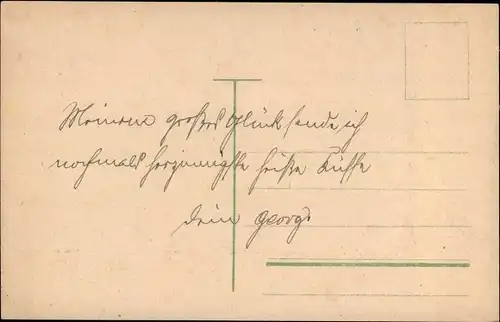 Meinem großen Glück sende ich
nochmals herzinnigste heiße Küsse
Dein Georg.